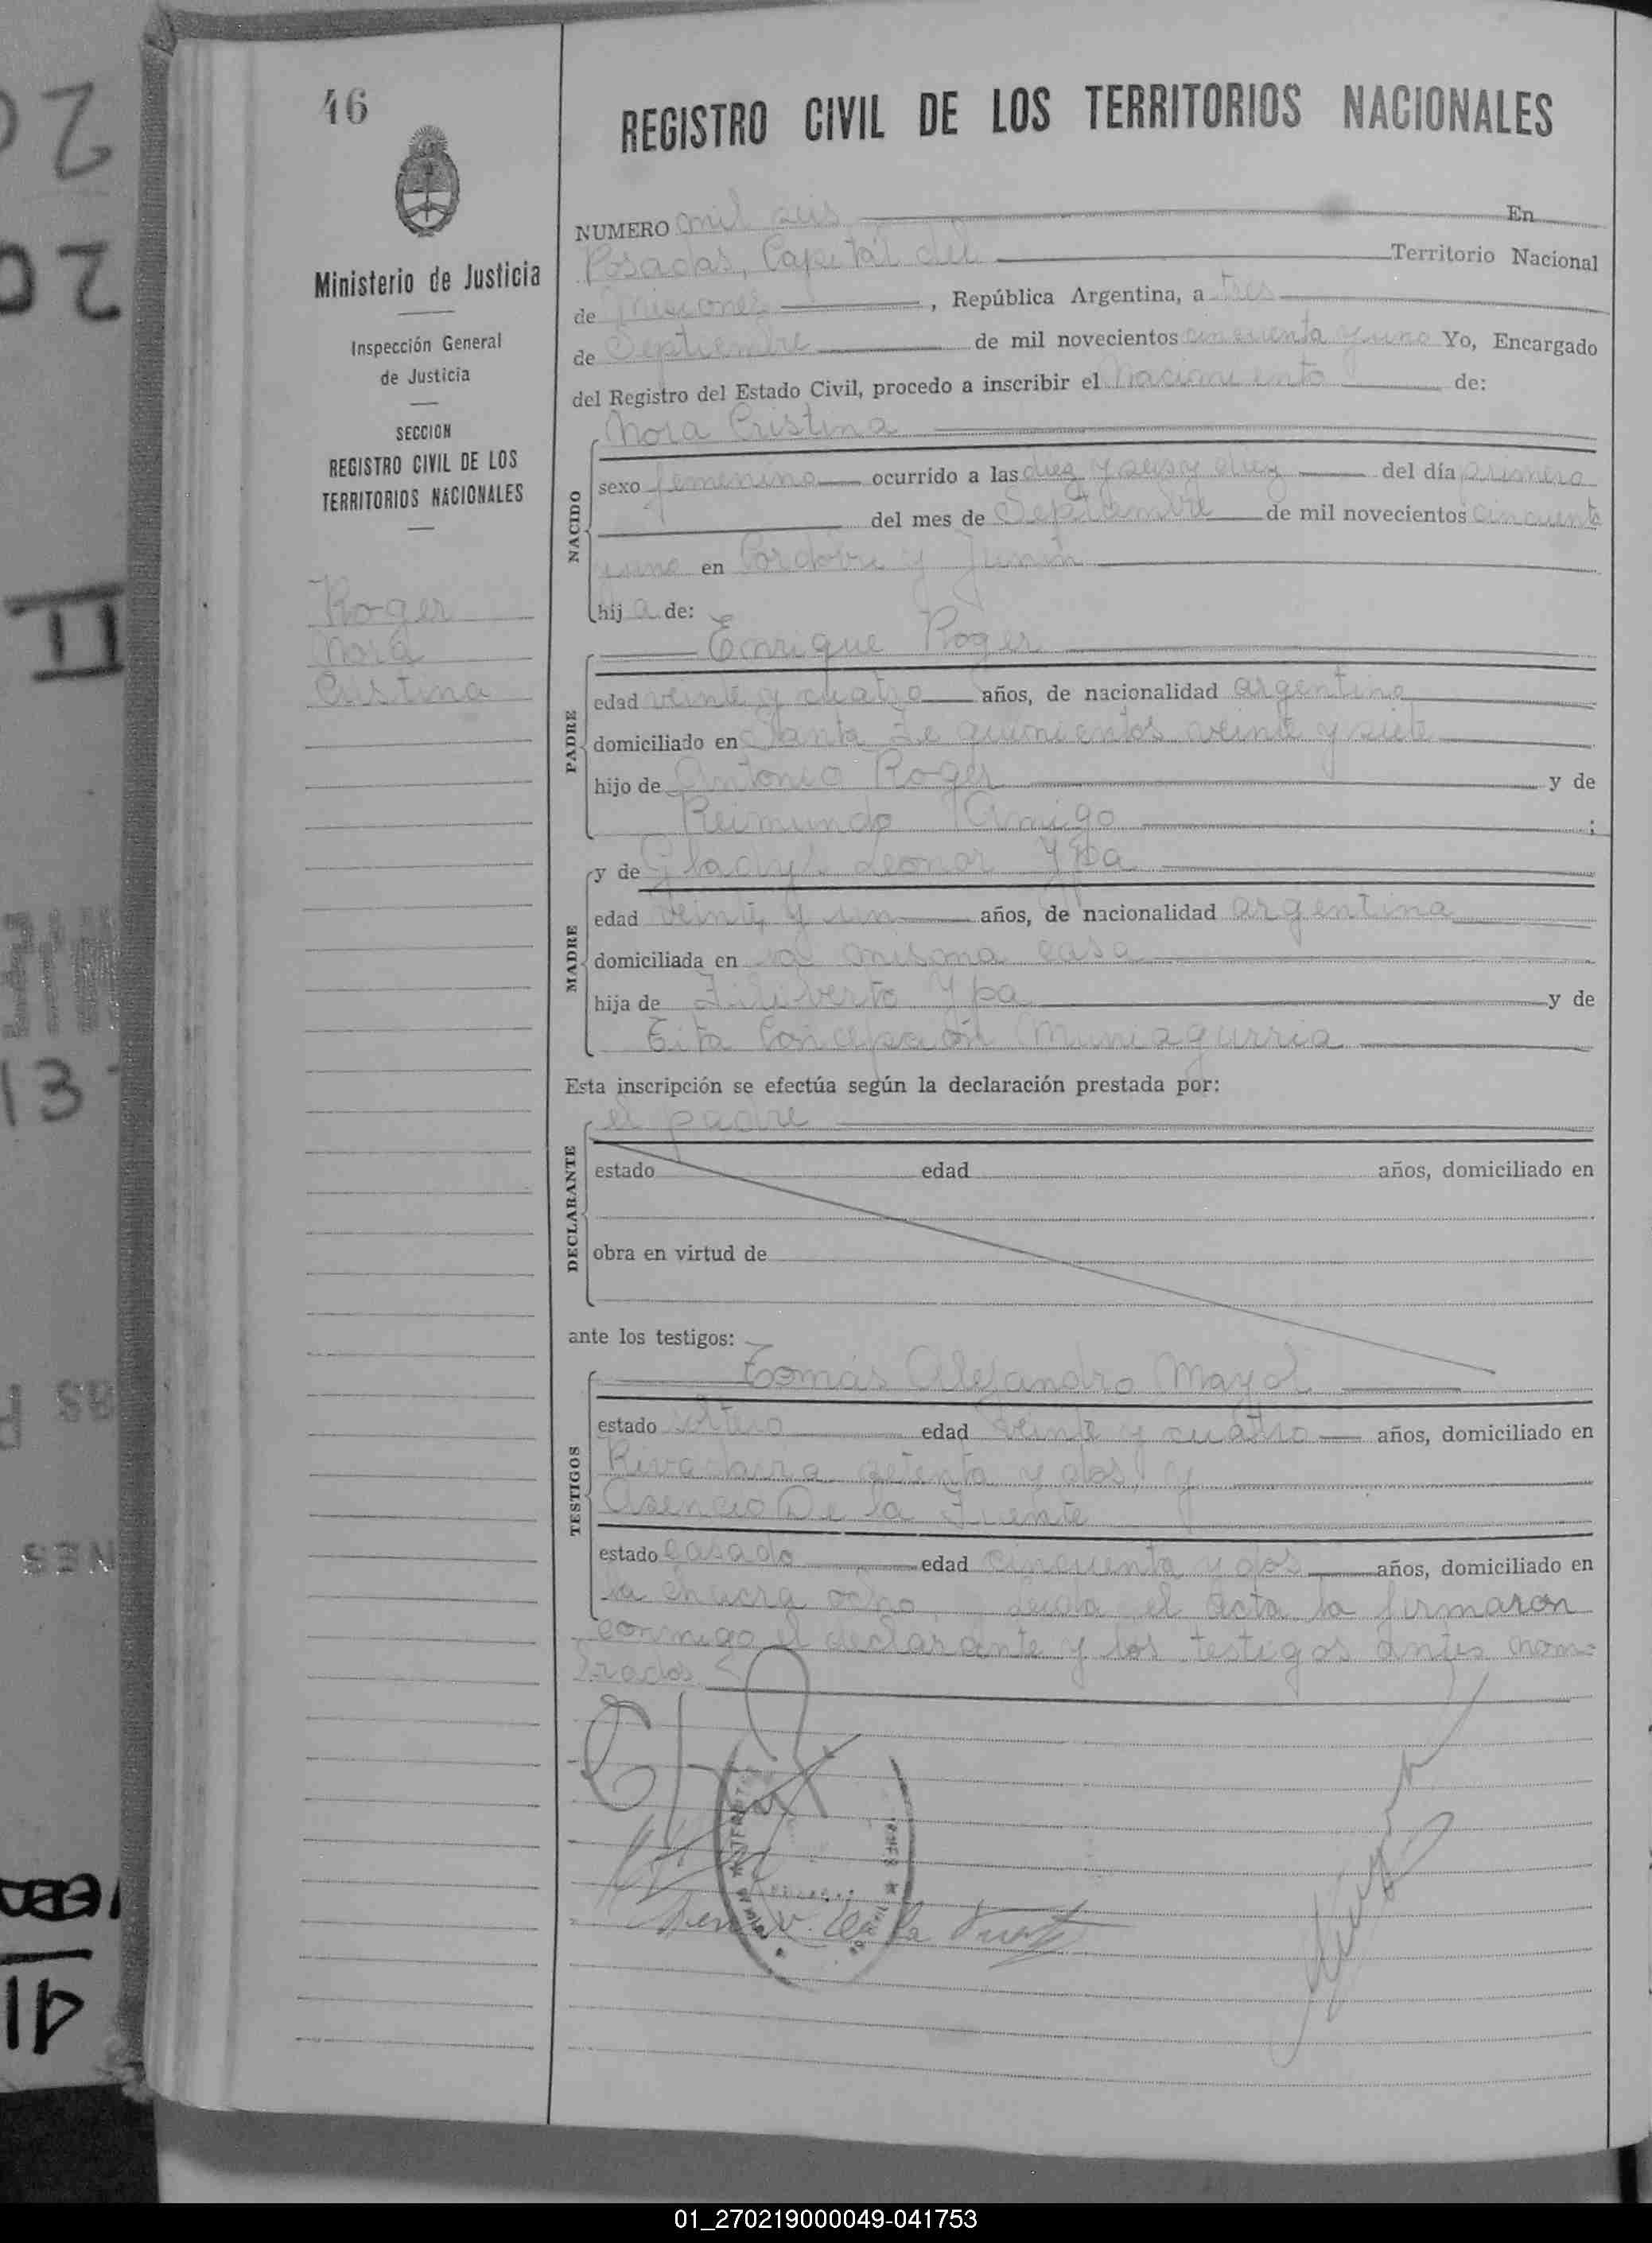 46
Ministerio de Justicia
Inspección General
de Justicia
SECCION
REGISTRO CIVIL DE LOS
TERRITORIOS NACIONALES
Roger
Nora
Cristina
REGISTRO CIVIL DE LOS TERRITORIOS NACIONALES
NUMERO mil seis En
Posadas, Capital del Territorio Nacional
de Misiones, República Argentina, a tres
de Septiembre de mil novecientos cincuenta y uno Yo, Encargado
del Registro del Estado Civil, procedo a inscribir el Nacimiento de:
NACIDO
Nora Cristina
sexo femenino ocurrido a las diez y seis y diez del día primero
del mes de Septiembre de mil novecientos cincuenta
y uno en Cordoba y Junin
hija de:
PADRE
Enrique Roger
edad veinte y cuatro años, de nacionalidad argentino
domiciliado en Santa Fe quinientos veinte y siete
hijo de Antonio Roger y de
Reimunda Amigo;
MADRE
y de Gladys Leonor Ypa
edad veinte y un años, de nacionalidad argentina
domiciliada en la misma casa
hija de Filiberto Ypa y de
Tita Concepción Muniagurria
Esta inscripción se efectúa según la declaración prestada por:
DECLARANTE
el padre
estado edad años, domiciliado en
obra en virtud de
ante los testigos:
TESTIGOS
Tomás Alejandro Mayol
estado soltero edad veinte y cuatro años, domiciliado en
Rivadavia setenta y dos, y
Asencio De la Fuente
estado casado edad cincuenta y dos años, domiciliado en
la chacra ocho. Leida el acta la firmaron
conmigo el declarante y los testigos antes nom=
brados
01_270219000049-041753